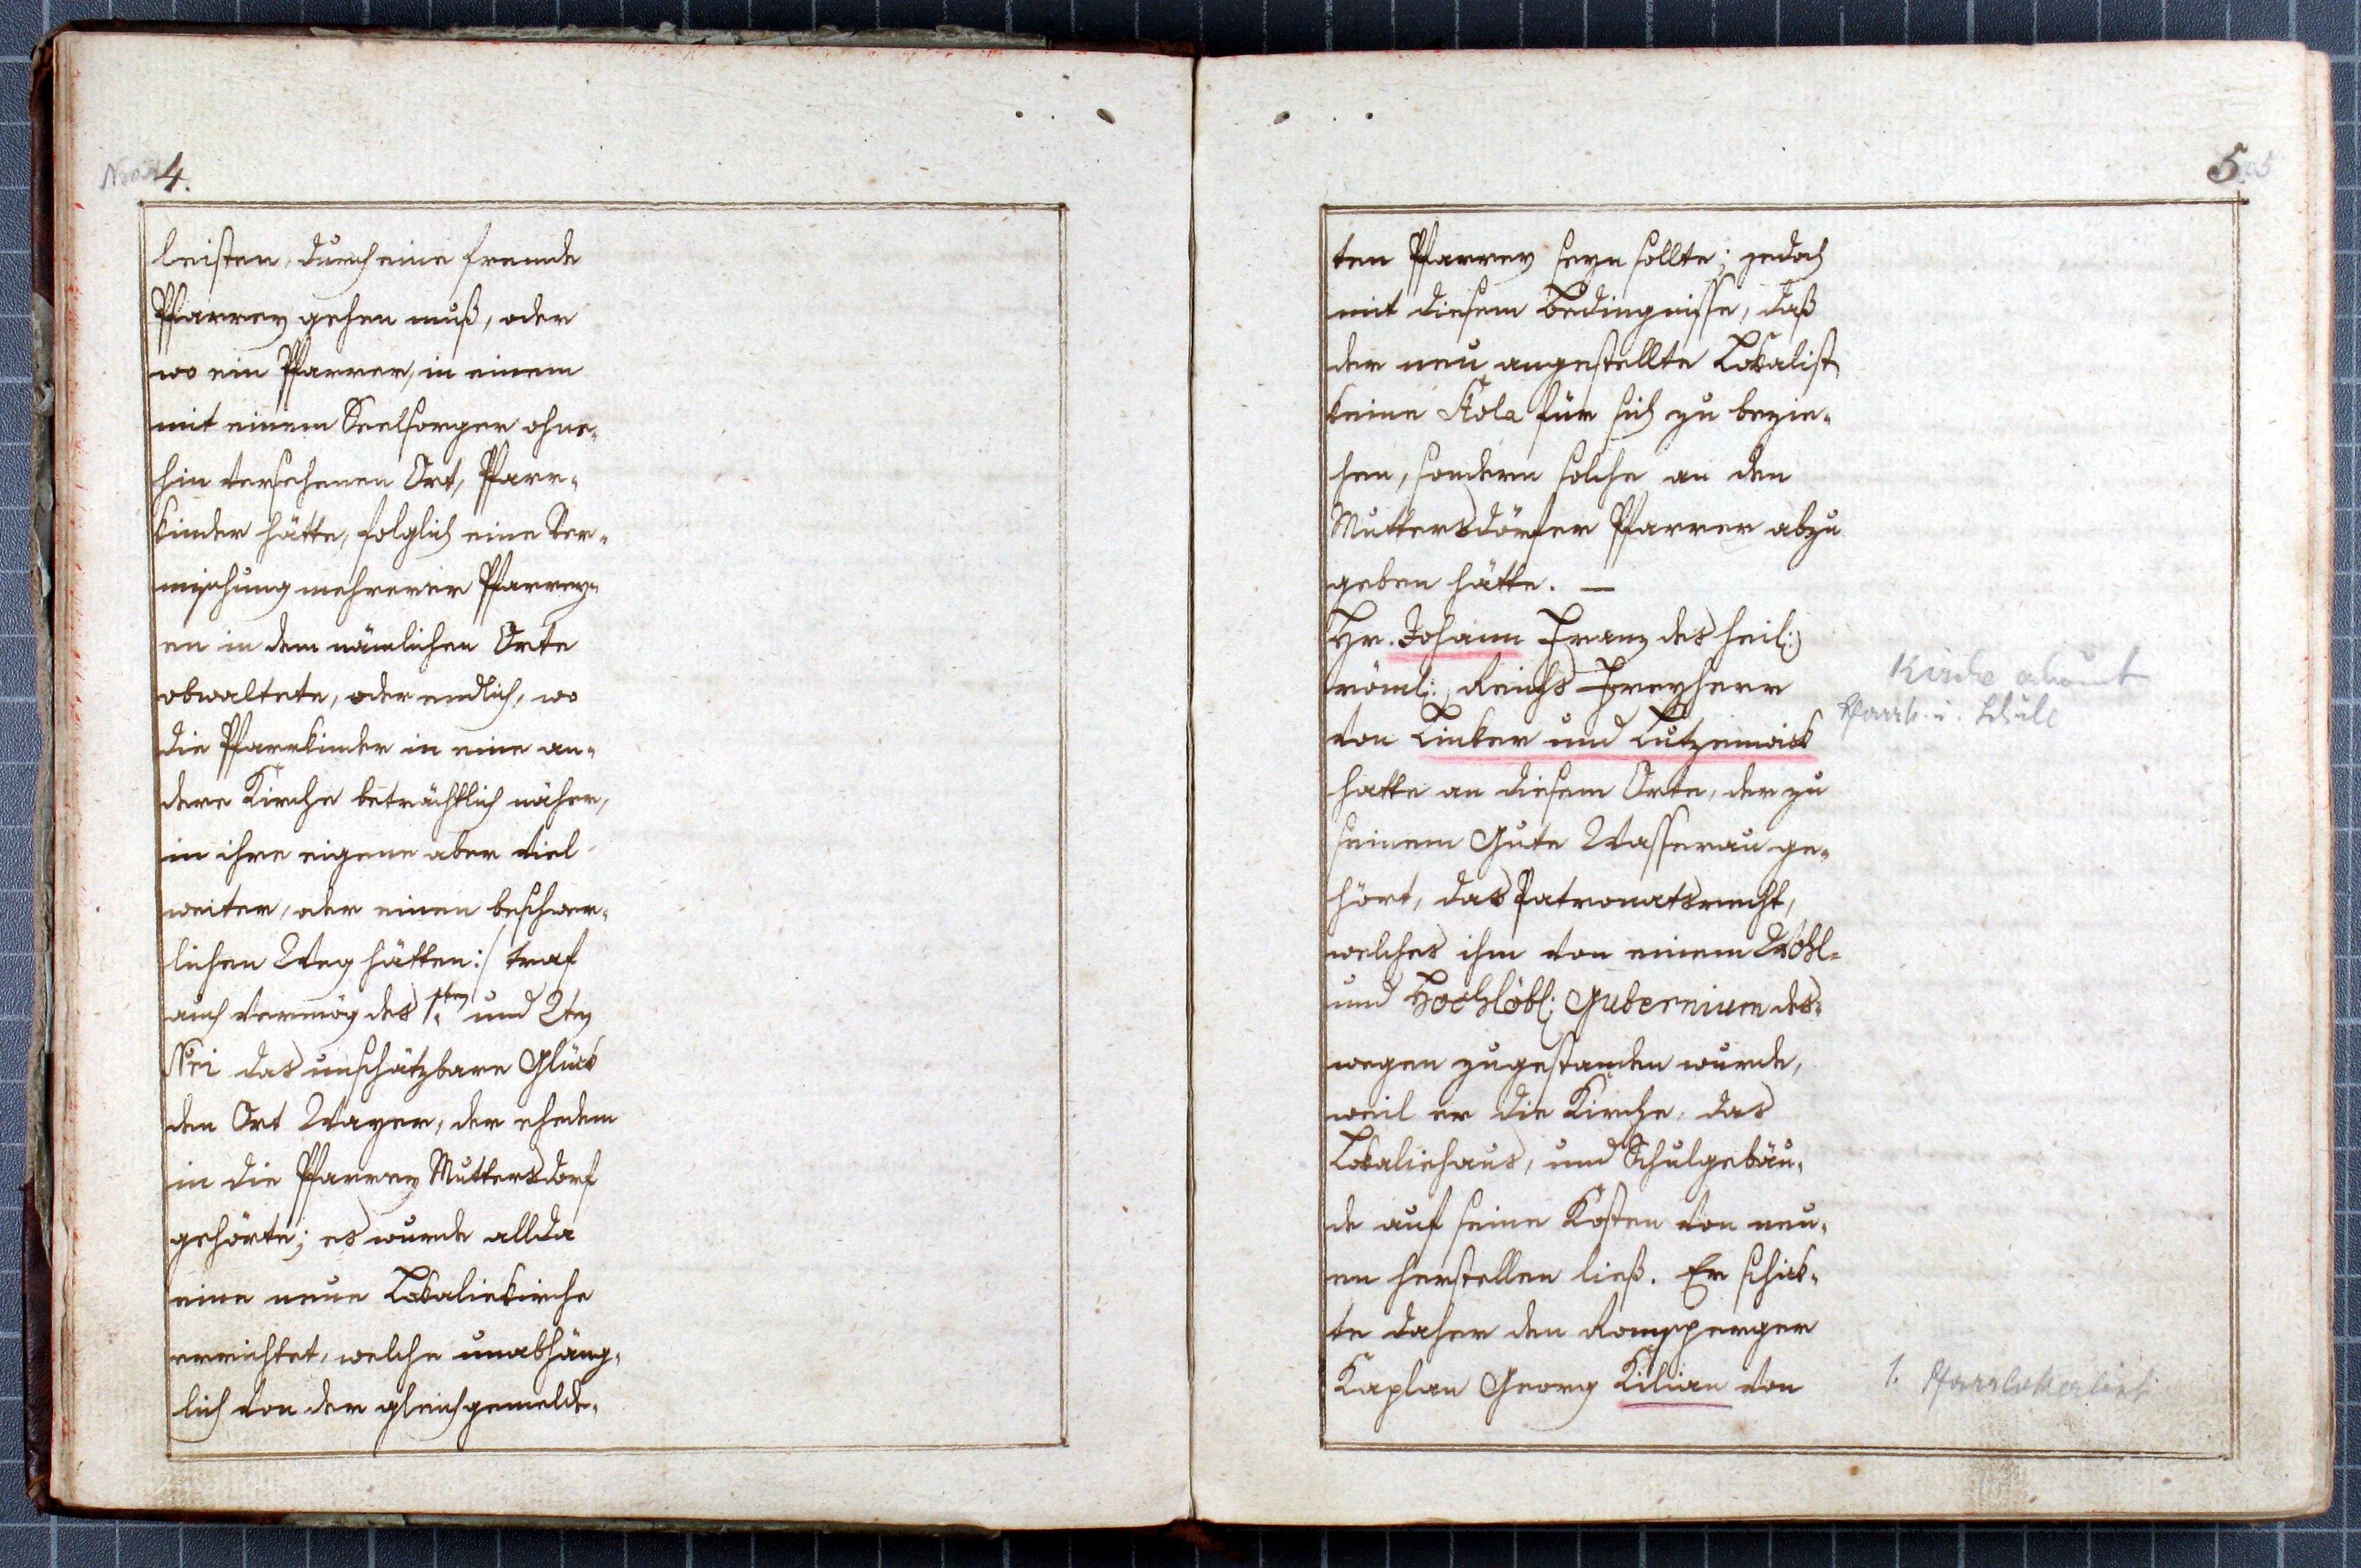 4.
leisten, durch eine fremde
Pfarrey gehen muß, oder
wo ein Pfarrer, in einem
mit einem Seelsorger ohne-
hin versehenen Ort, Pfarr-
kinder hätte, folglich eine Ver-
mischung mehrerer Pfarrey-
en in dem nämlichen Orte
obwaltete, oder endlich, wo
die Pfarrkinder in eine an-
dere Kirche beträchtlich näher,
in ihre eigene aber viel
weiter, oder einen beschwer-
lichen Weg hätten :/ traf
auch vermög des 1.ten und 2ten
Nri das unschätzbare Glück
den Ort Wayer, der ehedem
in die Pfarrey Muttersdorf
gehörte; es wurde allda
eine neue Lokaliekirche
errichtet, welche unabhäng-
lich von der gleichgemelde-
5.
ten Pfarrey seyn sollte; jedoch
mit diesem Bedingnisse, daß
der neu angestellte Lokalist
keine Stola für sich zu bezie-
hen, sondern solche an den
Muttersdörfer Pfarrer abzu
geben hätte. —
Hr. Johann Franz des heil:
röml: Reichs Freyherr
von Linker und Lutzenwick
hatte an diesem Orte, der zu
seinem Gute Wasserau ge-
hört, das Patronatsrecht,
welches ihm von einem Wohl-
und Hochlöbl: Gubernium des-
wegen zugestanden wurde,
weil er die Kirche, das
Lokaliehaus, und Schulgebäu-
de auf seine Kosten von neu-
en herstellen ließ. Er schick-
te daher den Romsperger
Kaplan Georg Kilian von
Kirche erbaut
Pfarrh. u. Schule
1. Pfarrlokalist